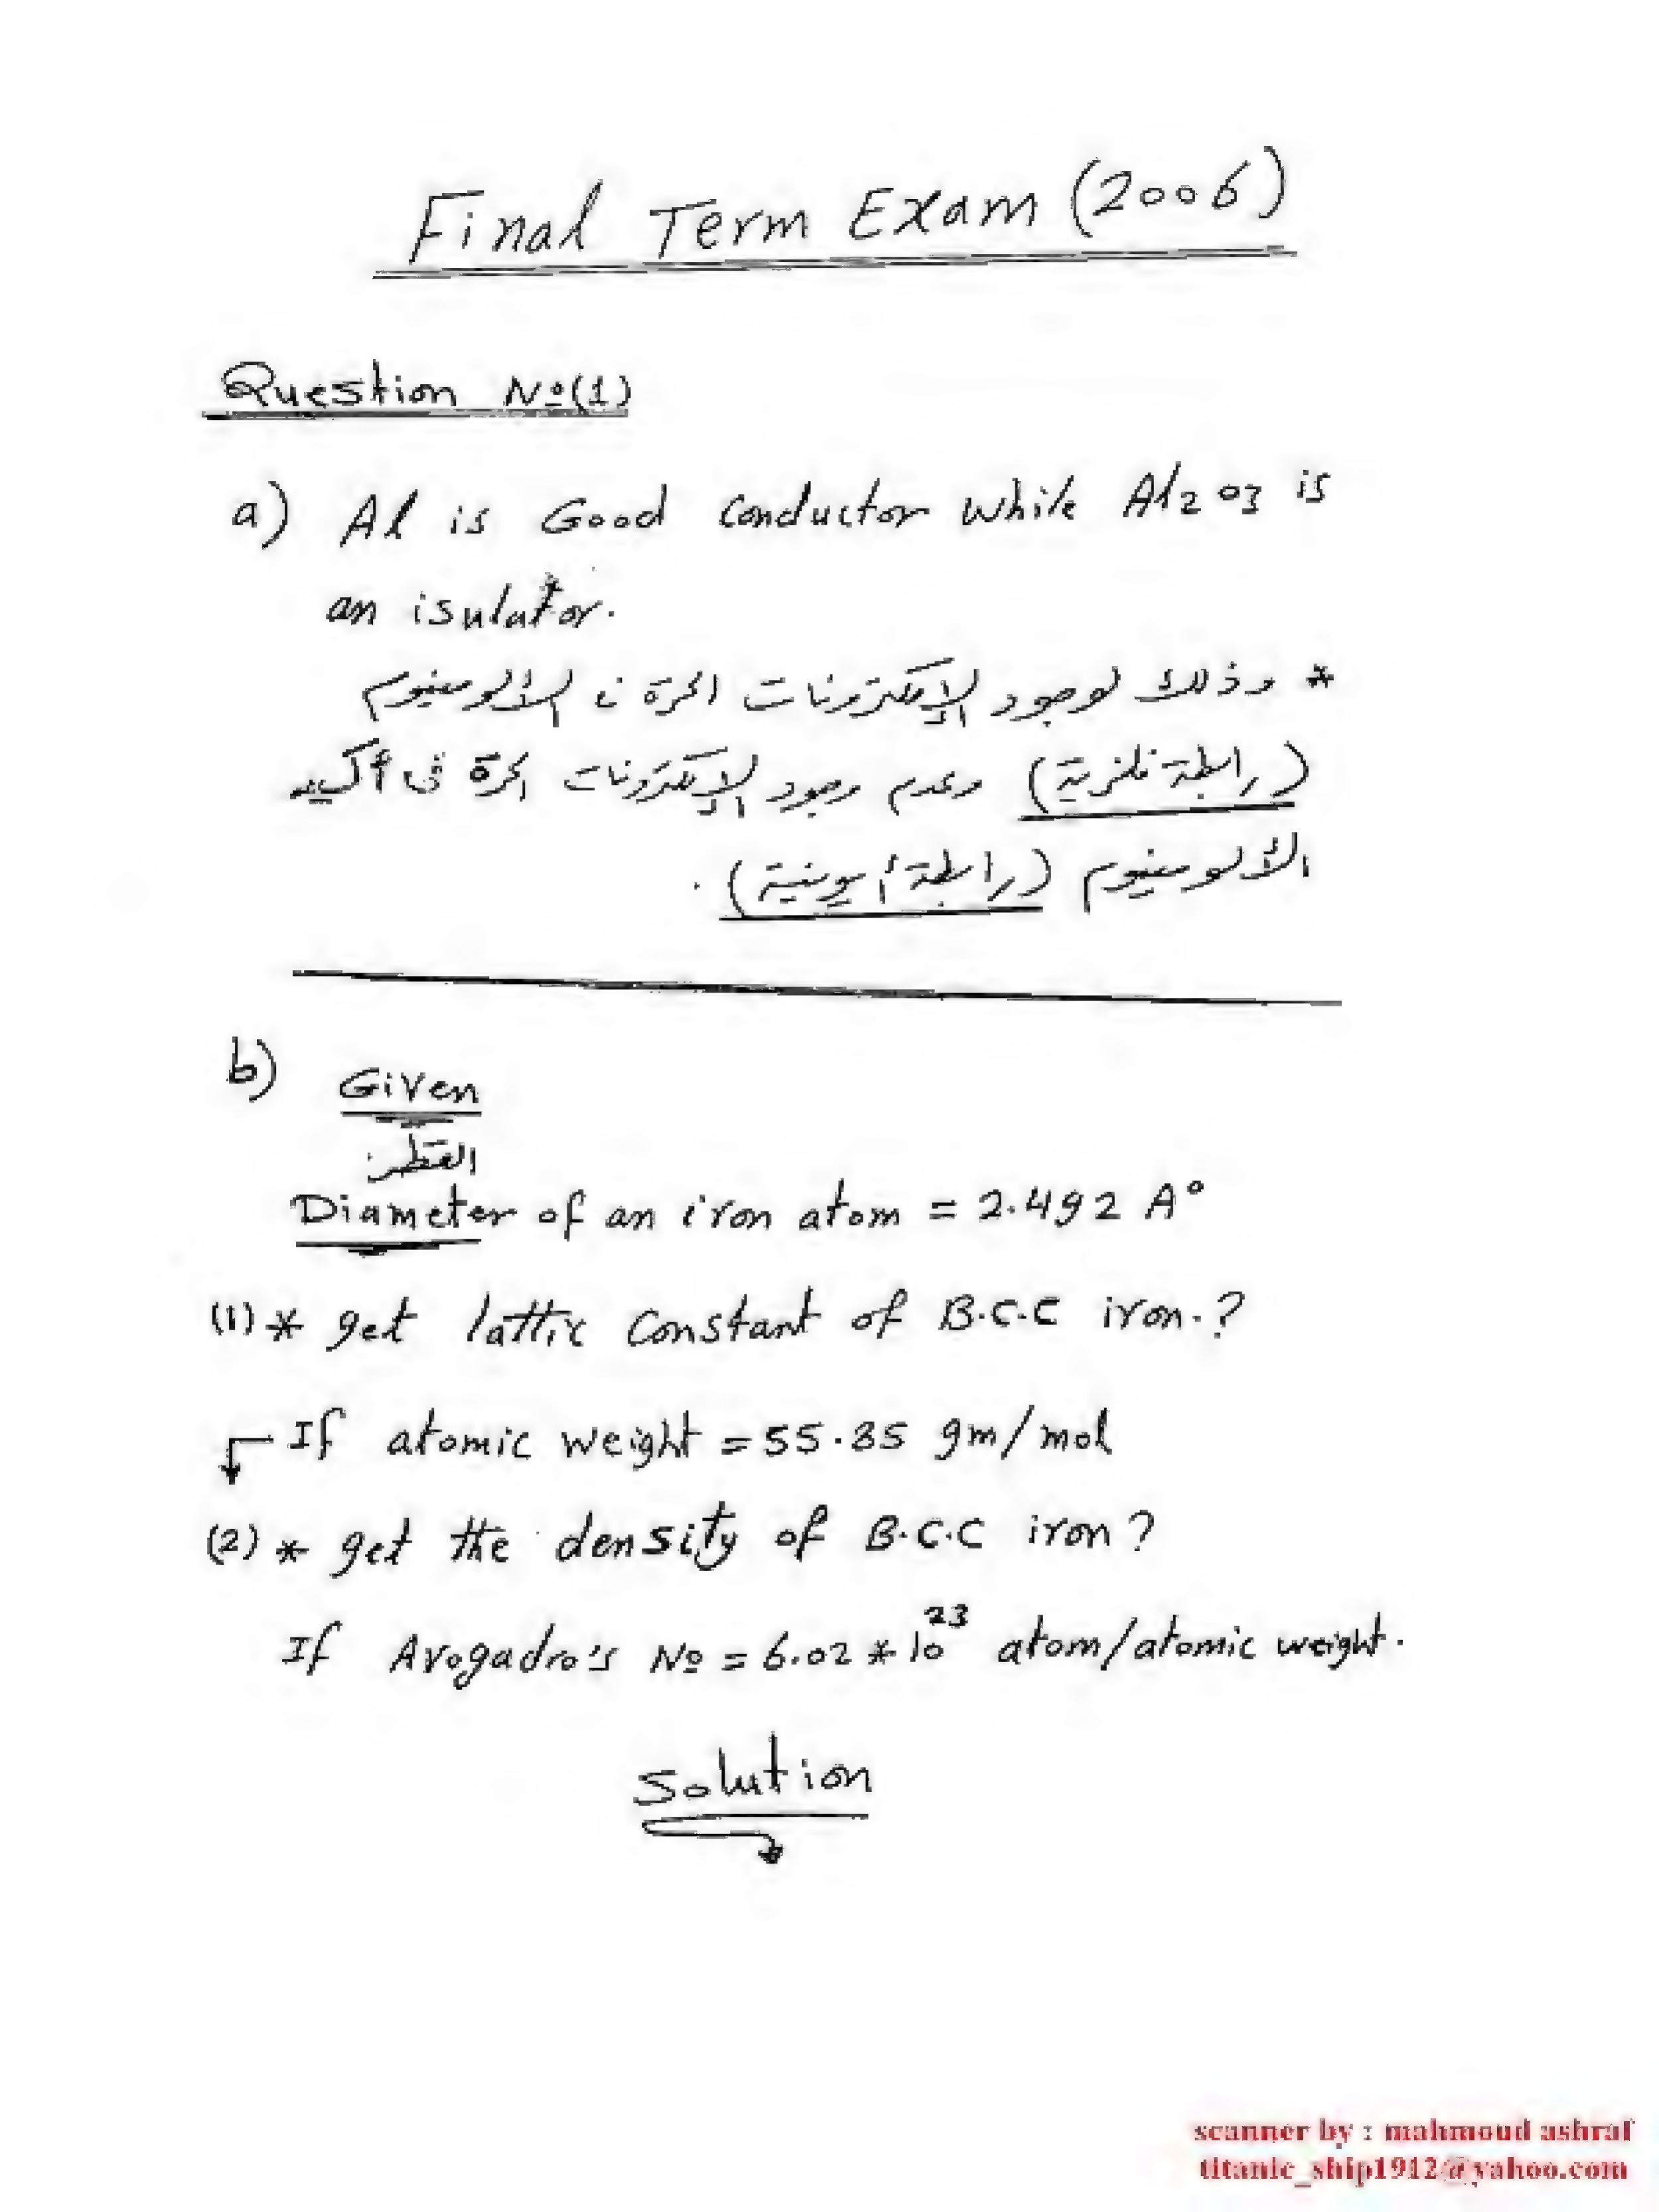 Final Term Exam (2006)
Question Nº(1)
a) Al is Good conductor while Al2O3 is
an isulator.
* وذلك لوجود الإلكترونات الحرة فى الألومنيوم
(رابطة فلزية) وعدم وجود الإلكترونات الحرة فى أكسيد
الألومنيوم (رابطة أيونية).
b) Given
القطر
Diameter of an iron atom = 2.492 A°
(1) * get lattic constant of B.C.C iron.?
If atomic weight = 55.85 gm/mol
(2) * get the density of B.C.C iron?
If Avogadro's Nº = 6.02 * 10^23 atom/atomic weight.
Solution
scanner by : mahmoud ashraf
titanic_ship1912@yahoo.com